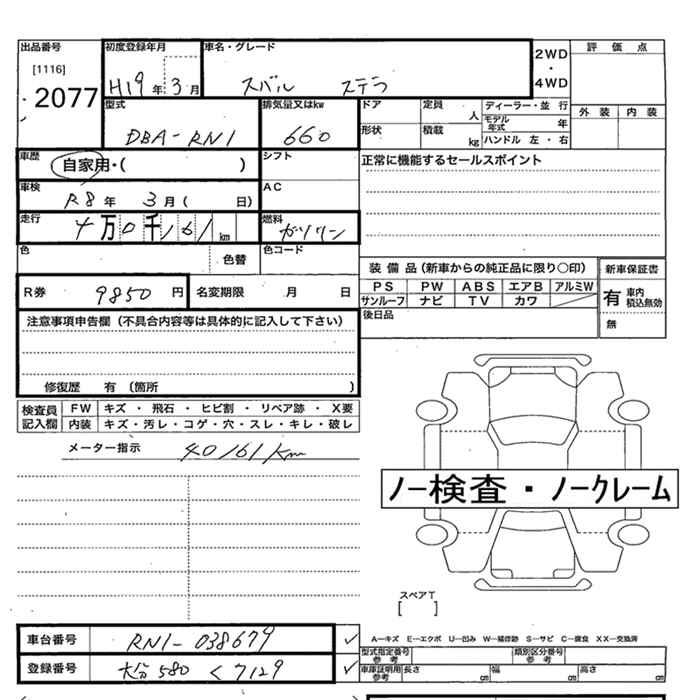 出品番号 初度登録年月 車名・グレード 2WD・4WD 評価点
[1116]
2077
H19年3月 スバル ステラ
型式 排気量又はkw ドア 定員 人 ディーラー・並行 外装 内装
モデル年式 年
DBA-RN1 660 形状 積載 kg ハンドル 左・右
車歴 自家用・( ) シフト 正常に機能するセールスポイント
車検 R8年 3月( 日) AC
走行 4万0千161km 燃料 ガソリン
色 色替 色コード
装備品(新車からの純正品に限り〇印) 新車保証書
R券 9850円 名変期限 月 日
PS PW ABS エアB アルミW 有 車内 積込無効
サンルーフ ナビ TV カワ
注意事項申告欄(不具合内容等は具体的に記入して下さい) 後日品 無
修復歴 有 (箇所 )
検査員記入欄 FW キズ・飛石・ヒビ割・リペア跡・X要
内装 キズ・汚レ・コゲ・穴・スレ・キレ・破レ
メーター指示 40161km
ノー検査・ノークレーム
スペアT
[ ]
車台番号 RN1-038679 ✓ A―キズ E―エクボ U―凹み W―補修跡 S―サビ C―腐食 XX―交換済
型式指定番号 参考 類別区分番号 参考
登録番号 大分580 く7129 ✓ 車庫証明用 参考 長さ cm 幅 cm 高さ cm